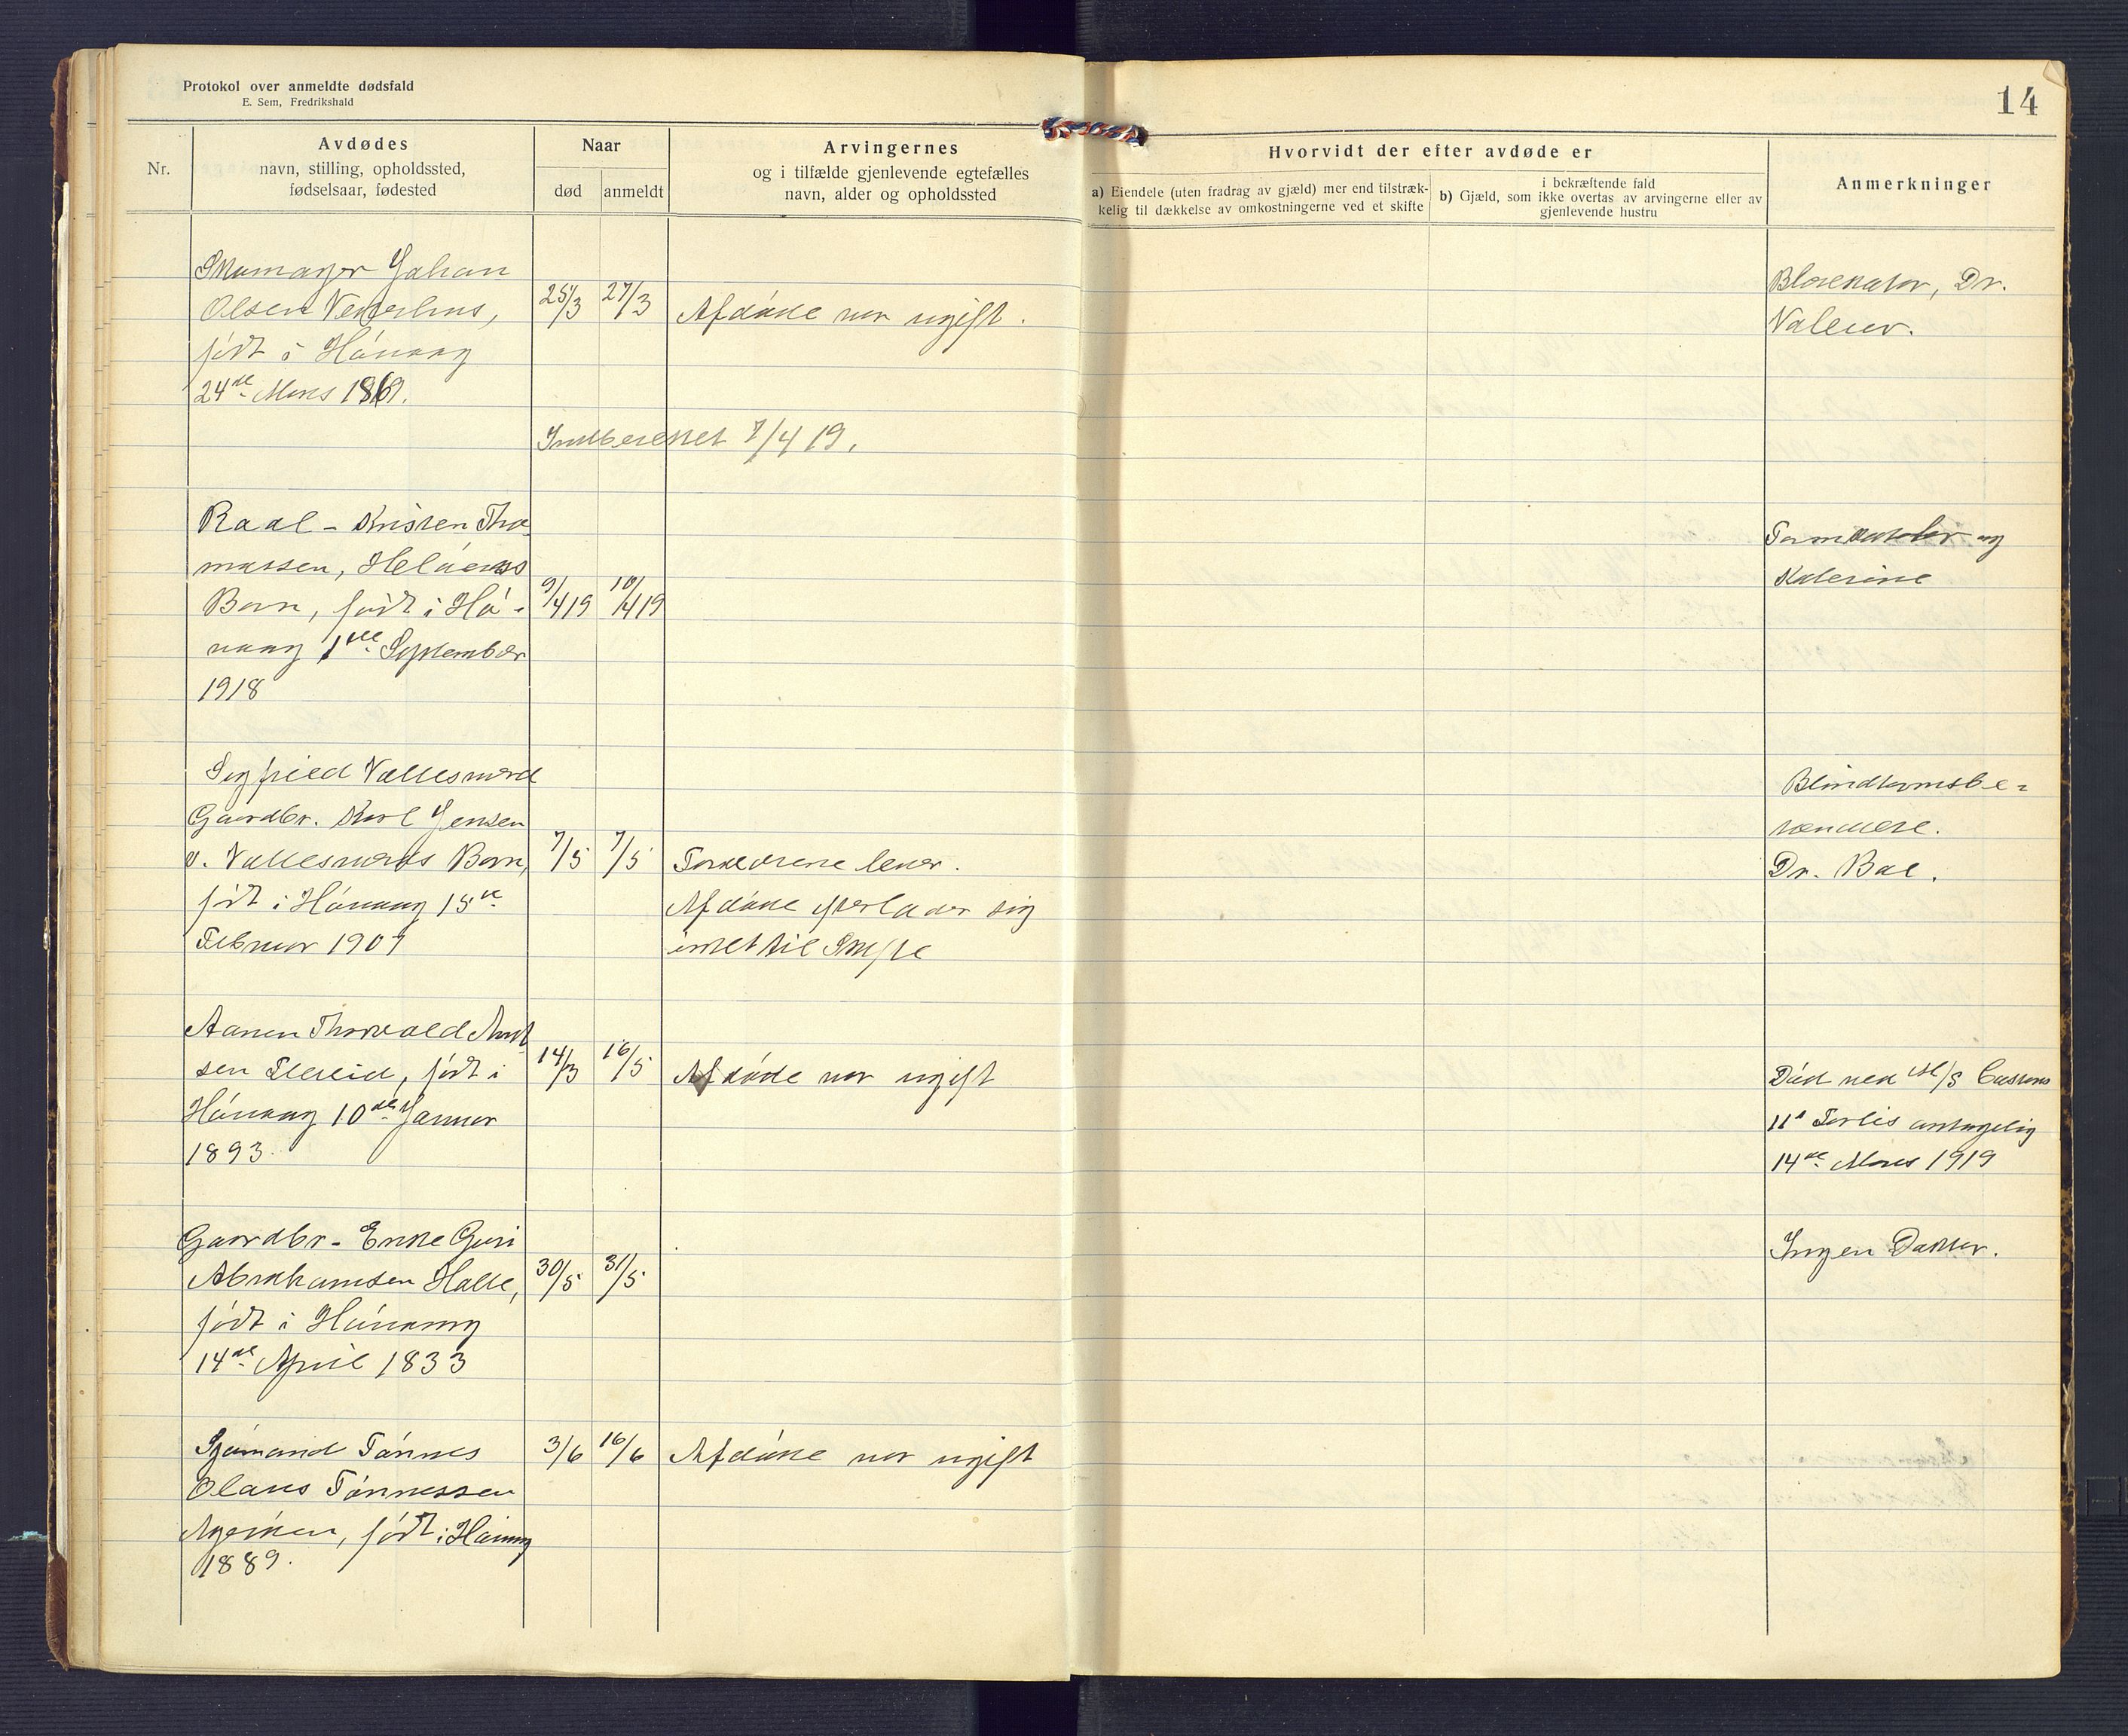 Protokol over anmeldte dødsfald
E. Sem, Fredrikshald
14
Nr.
Avdødes
navn, stilling, opholdssted,
fødselsaar, fødested
Naar
død
anmeldt
Arvingernes
og i tilfælde gjenlevende egtefælles
navn, alder og opholdssted
Hvorvidt der efter avdøde er
a) Eiendele (uten fradrag av gjæld) mer end tilstræk-
kelig til dækkelse av omkostningerne ved et skifte
i bekræftende fald
b) Gjæld, som ikke overtas av arvingerne eller av
gjenlevende hustru
Anmerkninger
Skomager Johan
Olsen
født i Hónaag
24de Mars 1869.
25/3
27/3
Afdøde var ugift.
Dr.
Indberettet 7/4 19.
Kristen Tho-
massen,
Barn, født i Hó-
naag 1ste September
1918
9/4 19
10/4 19
og
Sigfried Vallesværd
Gaardbr. Karl Jensen
v. Vallesværds Barn,
født i Hónaag 15de
Februar 1907
7/5
7/5
Forældrene lever.
Afdøde efterlader sig
intet til Skifte
Blindtarmsbe-
tændelse.
Dr. Bae.
Aanen Thorvald
sen Eleseid, født i
Hónaag 10de Januar
1893.
14/3
16/5
Afdøde var ugift
Død ved M/S
Forlis antagelig
14de Mars 1919
Gaardbr. Enke Guri
Abrahamsen Halle,
født i Hónaag
14de April 1833
30/5
31/5
Ingen Doktor.
Sjømand Tønnes
Olaus Tønnessen
født i Hónaag
1889.
3/6
16/6
Afdøde var ugift